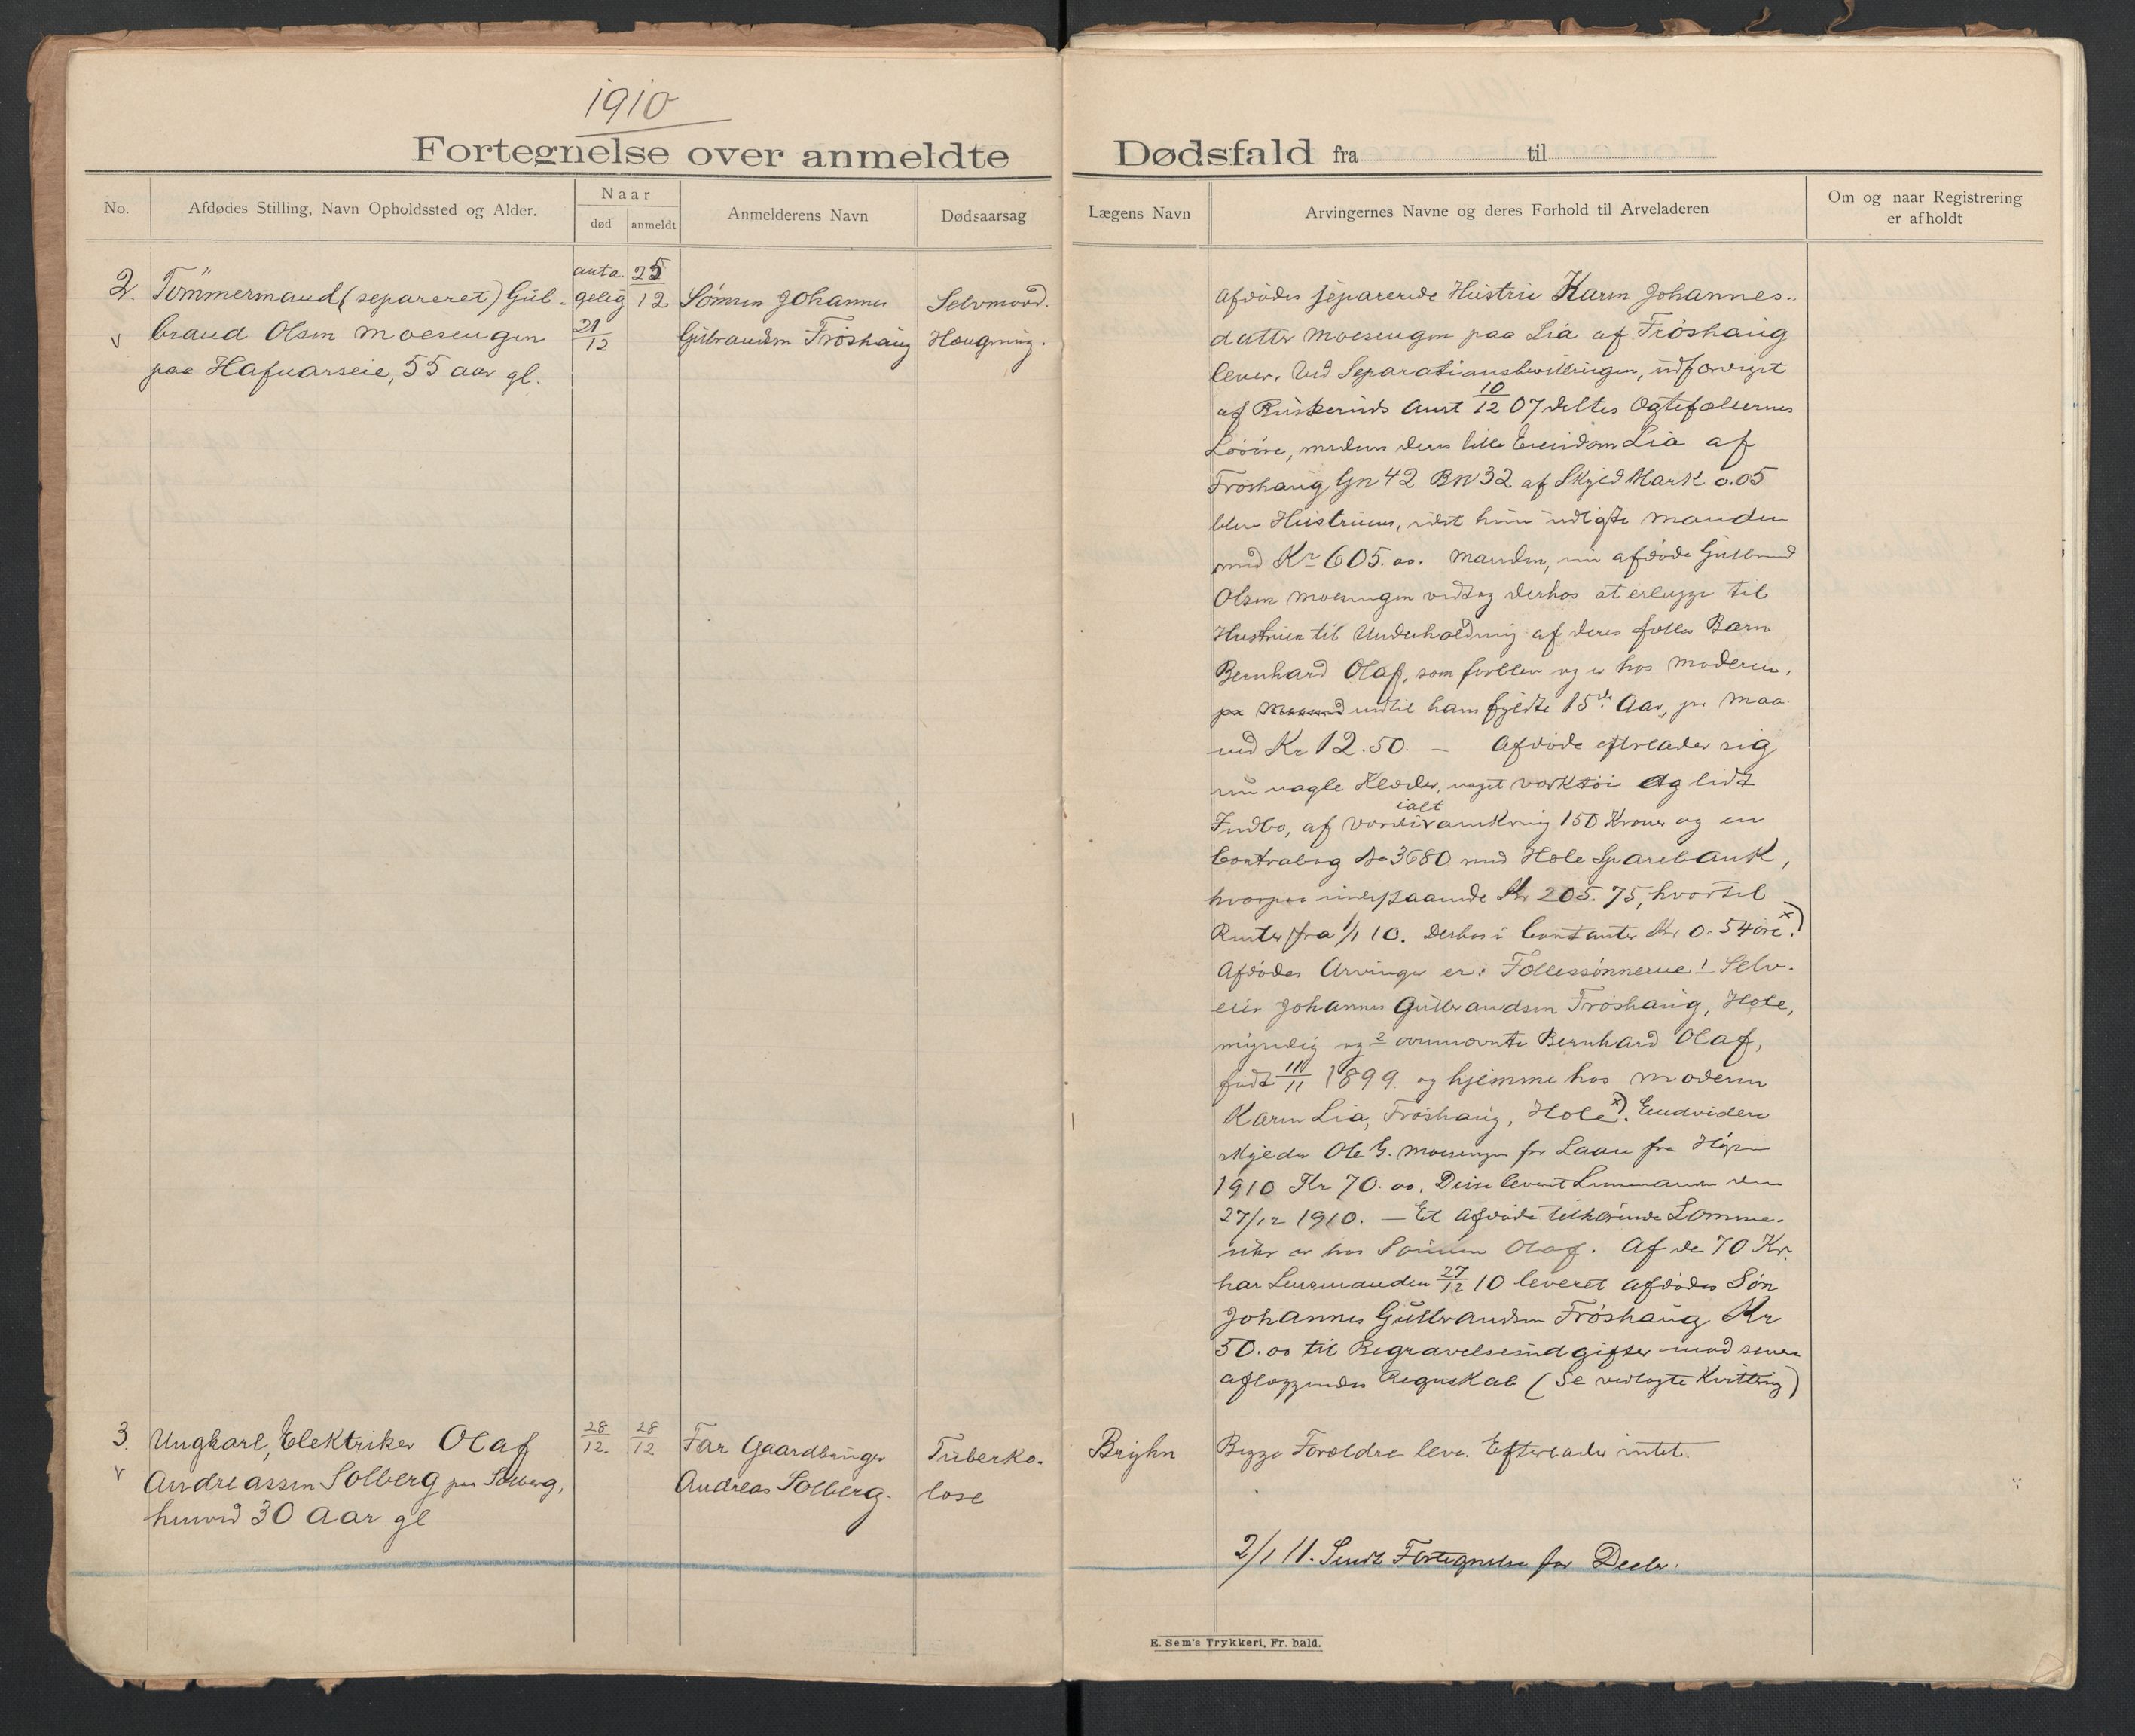 1910
Fortegnelse over anmeldte Dødsfald fra til
No.
Afdødes Stilling, Navn Opholdssted og Alder.
Naar
død
anmeldt
Anmelderens Navn
Dødsaarsag
Lægens Navn
Arvingernes Navne og deres Forhold til Arveladeren
Om og naar Registrering
er afholdt
2.
Tømmermand (separeret) Gul-
brand Olsen Moesengen
paa Hafnarseie, 55 aar gl.
anta.
gelig
21/12
25/12
Sønnen Johannes
Gulbrandsen Frøshaug
Selvmord.
Hængning.
Afdødes separerede Hustru Karen Johannes-
datter Moesengen paa Lia af Frøshaug
lever. Ved Separationsbevillingen, udfærdiget
af Buskeruds Amt 10/12 07 deltes Ægtefællernes
Løsøre, medens deres lille Eiendom Lia af
Frøshaug Gn 42 BN 32 af Skyld Mark 0.05
blev Hustruens, idet hun udløste Manden
med Kr 605.00. Manden, nu afdøde Gulbrand
Olsen Moesengen vedtog derhos at erlægge til
Hustruen til Underholdning af deres fælles Barn
Bernhard Olaf, som forblev og er hos Moderen,
pr Maaned indtil hans fyldte 15de Aar, pr Maa-
ned Kr 12.50. — Afdøde efterlader sig
nu nogle Klæder, noget værktøi og lidt
Indbo, af Værdi ialt omkring 150 Kroner og en
Contrabog No 3680 med Hole Sparebank,
hvorpaa indestaaende Kr 205.75, hvortil
Renter fra 1/1 10. Derhos i Contanter Kr 0.54 øre. x)
Afdødes Arvinger er: Fællessønnerne 1 Selv-
eier Johannes Gulbrandsen Frøshaug, Hole,
myndig og 2 ovennævnte Bernhard Olaf,
født 11/11 1899 og hjemme hos Moderen
Karen Lia, Frøshaug, Hole. x) Endvidere
skylder Ole G. Moesengen for Laan fra
1910 Kr 70.00. Disse leveret Lensmanden den
27/12 1910. — Et Afdøde tilhørende Lomme-
uhr er hos Sønnen Olaf. Af de 70 Kr.
har Lensmanden 27/12 10 leveret Afdødes Søn
Johannes Gulbrandsen Frøshaug Kr
50.00 til Begravelsesudgifter mod senere
aflæggendes Regnskab (Se vedlagte Kvittering)
3.
Ungkarl, Elektriker Olaf
Andreassen Solberg paa Solberg,
henved 30 Aar gl
28/12.
28/12
Far Gaardbruger
Andreas Solberg.
Tuberko-
lose
Bryhn
Begge Forældre lever. Efterlader intet.
2/1 11. Sendt Fortegnelse for Decbr.
E. Sem's Trykkeri, Fr. hald.